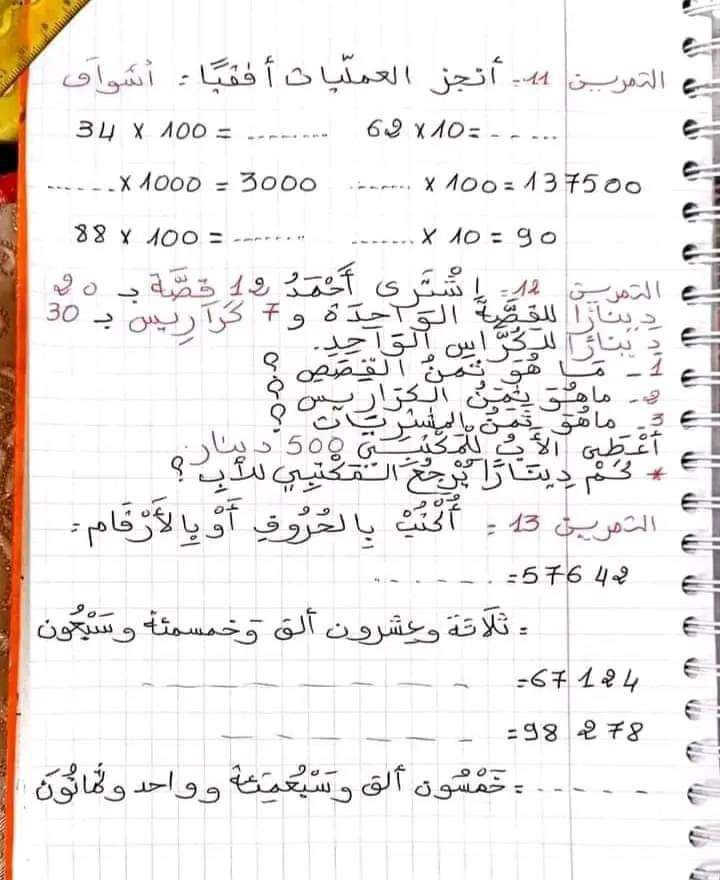 التمرين 11 = أنجز العمليات أفقيًا = أشواق
34 × 100 = ......... 62 ×10= - - ...
...... × 1000 = 3000 ....... × 100 = 137500
88 × 100 = ........ ........ × 10 = 90
التمرين 12 = اِشْتَرَى أَحْمَدُ 12 قصَّة بـ 20
دِينَارًا للقصَّة الوَاحِدَة و 7 كَرَارِيس بـ 30
دِينَارًا للكُرَّاسِ الوَاحِدِ.
1 - مَا هُوَ ثَمَنُ القِصَصِ ؟
2 - ماهُوَ ثَمَنُ الكرَارِيسِ ؟
3 - ماهُوَ ثَمَنُ المُشْتَرَيَات ؟
أَعْطَى الأَبُ لِلْمَكْتَبِي 500 دينار
* كَمْ دِينَارًا يُرْجِعُ المَكْتَبِي للأَبِ ؟
التمرين 13 = أُكْتُبْ بِالحُرُوفِ أَوْ بِالأَرْقَام =
57642 = - - - - - ...
= ثَلَاثَة وعِشرون ألف وَخمسمئة وسَبْعُون
67124 = - - - - - - -
98 278 = - - - - - -
- - - - . = خَمْسُون ألف وسَبْعُمِئَة وواحد وثمانُونَ